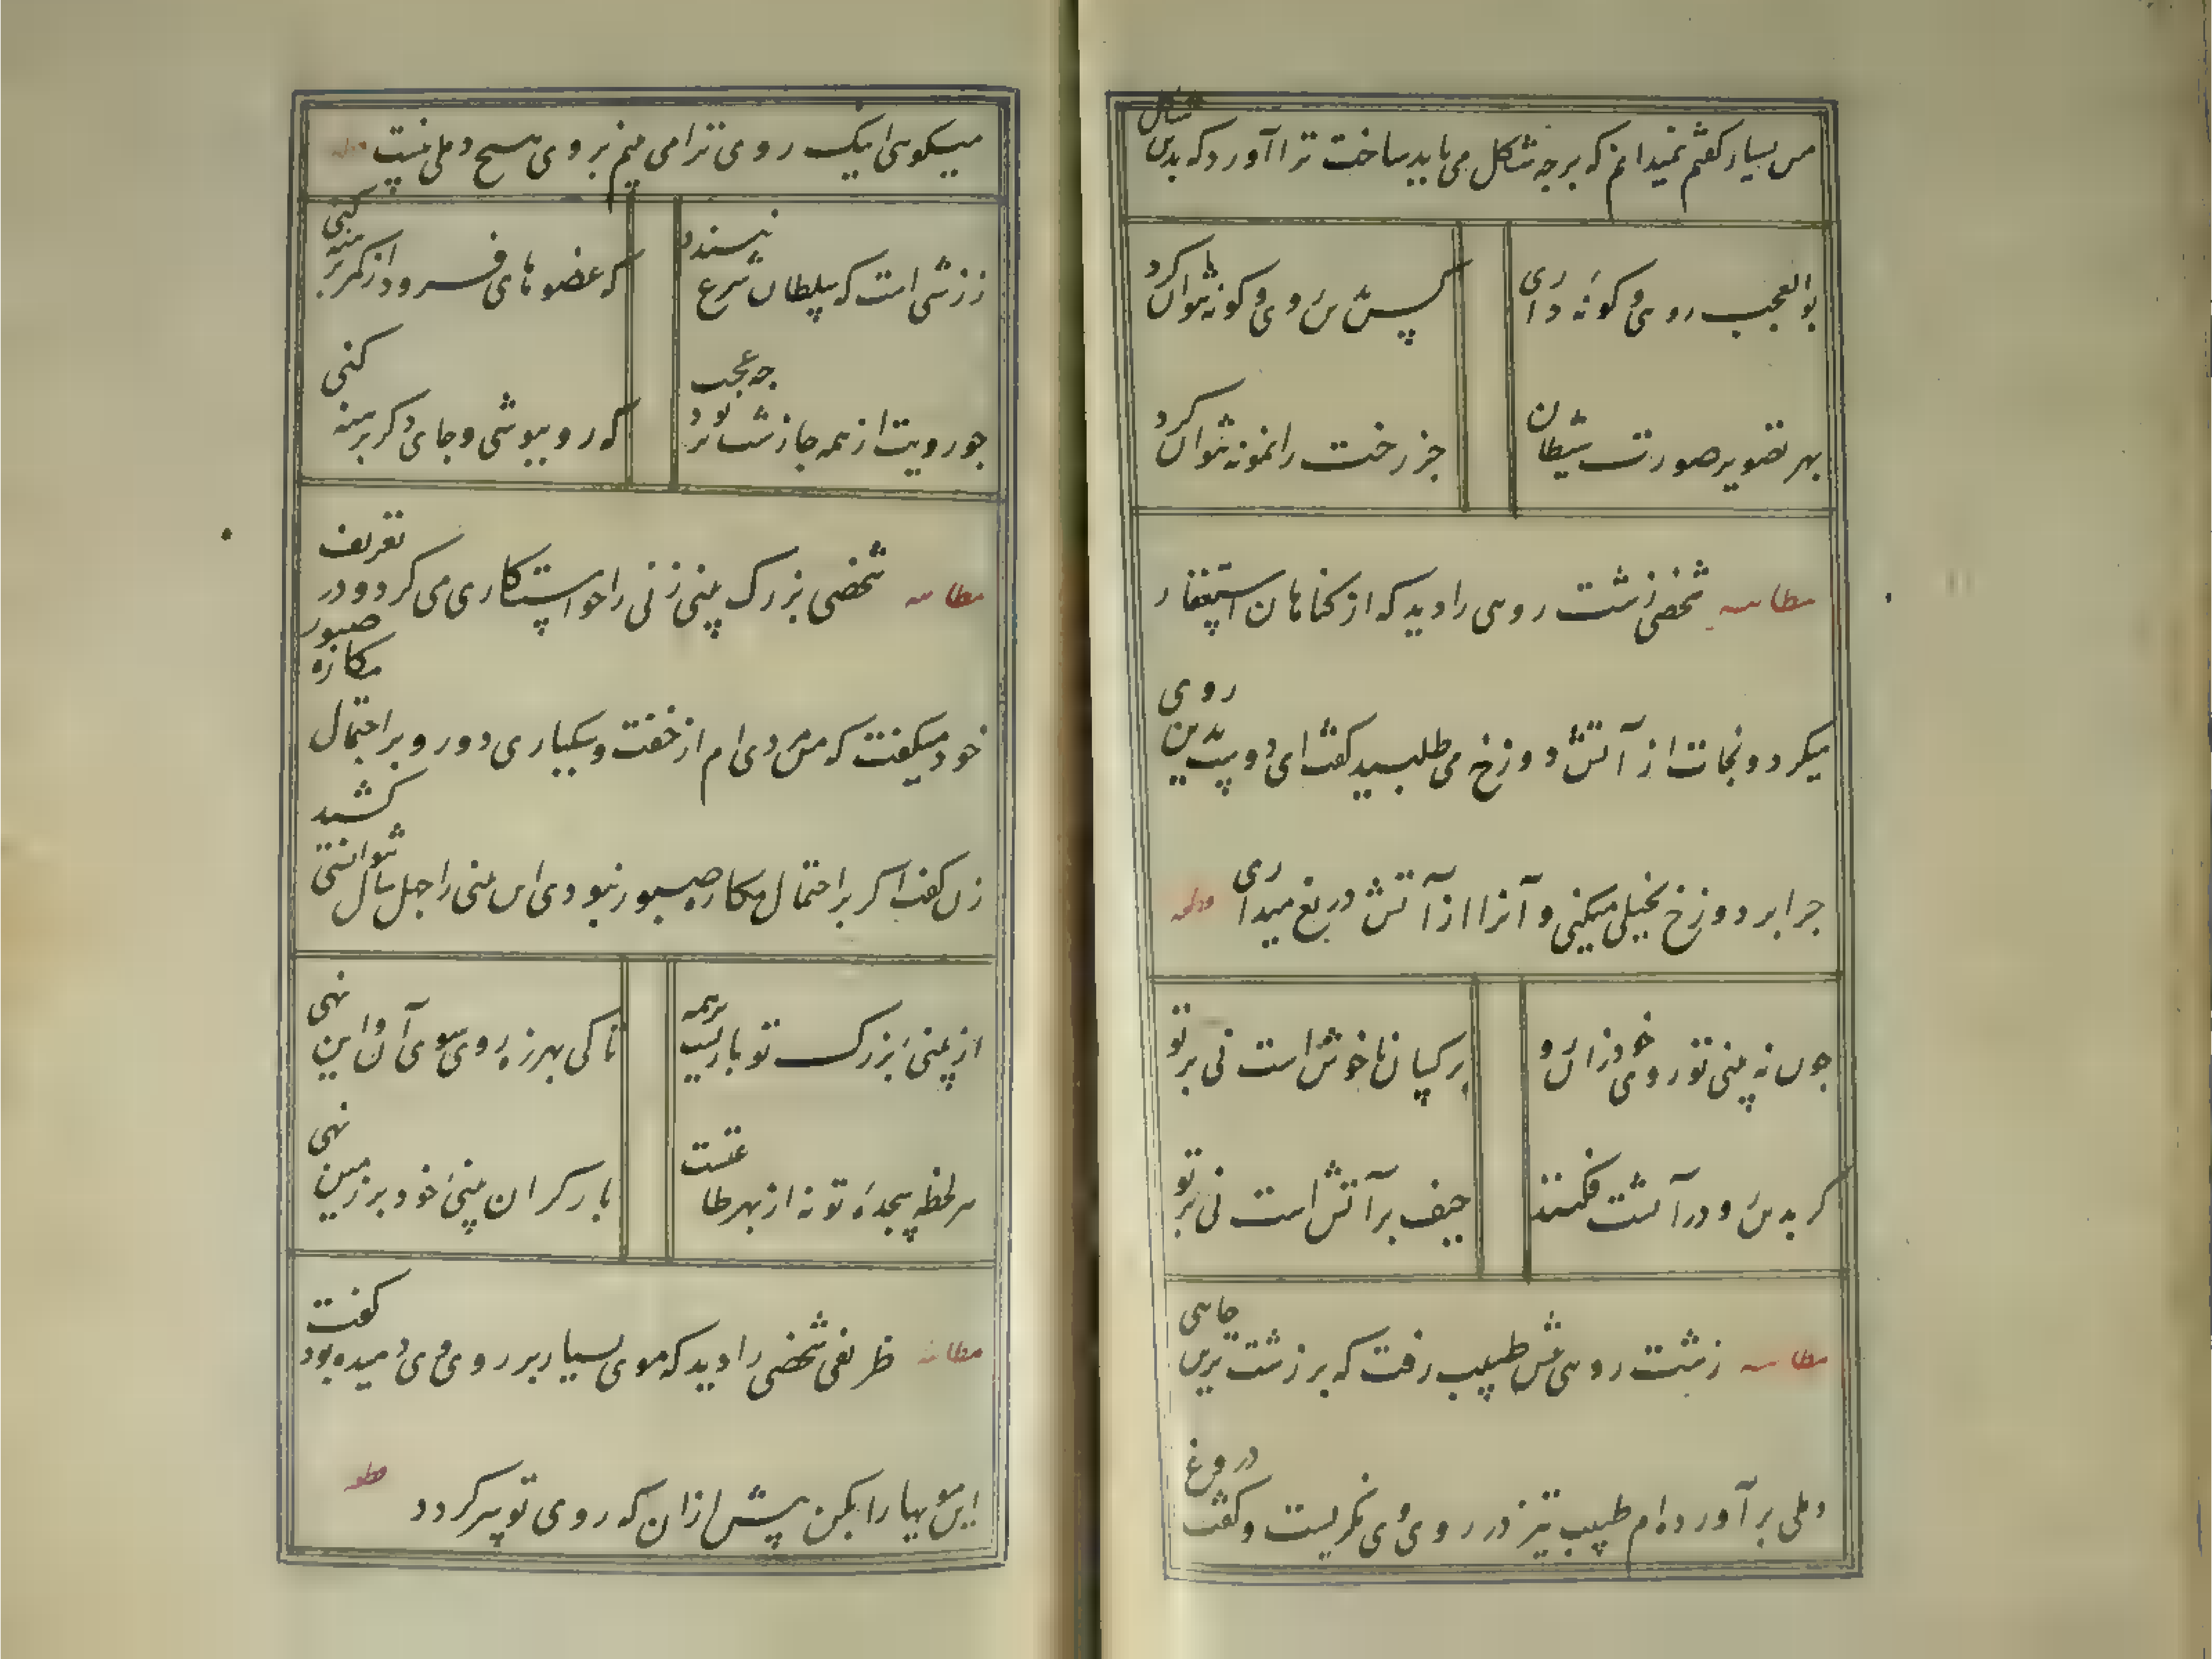 من بسیار کفتم نمیدانم که بر چه شکل می باید ساخت ترا آورد که بدین شکل
بوالعجب روی و کونهٔ داری
کس بدین روی و کونه نتوان کرد
بهر تصویر صورت شیطان
جز رخت را نمونه نتوان کرد
مطایبه شخصی زشت رویی را دید که از کناهان استغفار
میکرد و نجات از آتش دوزخ می طلبید کفت ای دوست بدین روی
چرا بر دوزخ بخیلی میکنی و آنرا از آتش دریغ میداری قطعه
چون نه بینی تو روی خود زان رو
بر کسان ناخوش است نی بر تو
کر بدین رو در آتشت فکنند
حیف بر آتش است نی بر تو
مطایبه زشت رویی پیش طبیب رفت که بر زشت ترین جایی
دملی برآورده ام طبیب تیز در روی وی نکریست و کفت دروغ
میکویی اینک روی ترا می بینم بر وی هیچ دملی نیست قطعه
ز زشتی است که سلطان شرع نپسندد
که عضوهای فرود از کمر برهنه کنی
چو رویت از همه جا زشت تر بود چه عجب
که رو بپوشی و جای دکر برهنه کنی
مطایبه شخصی بزرک بینی زنی را خواستکاری می کرد و در تعریف
خود میکفت که من مردی ام از خفت و سبکباری دور و بر احتمال مکاره صبور
زن کفت اکر بر احتمال مکاره صبور نبودی این بینی را چهل سال نتوانستی کشید
از بینیٔ بزرک تو باریست بر همه
تا کی بهرزه روی سوی آن و این نهی
هر لحظه سجدهٔ تو نه از بهر طاعتست
بار کران بینیٔ خود بر زمین نهی
مطایبه ظریفی شخصی را دید که موی بسیار بر روی وی دمیده بود کفت
این مویها را بکن پیش از آن که روی تو سر کردد قطعه